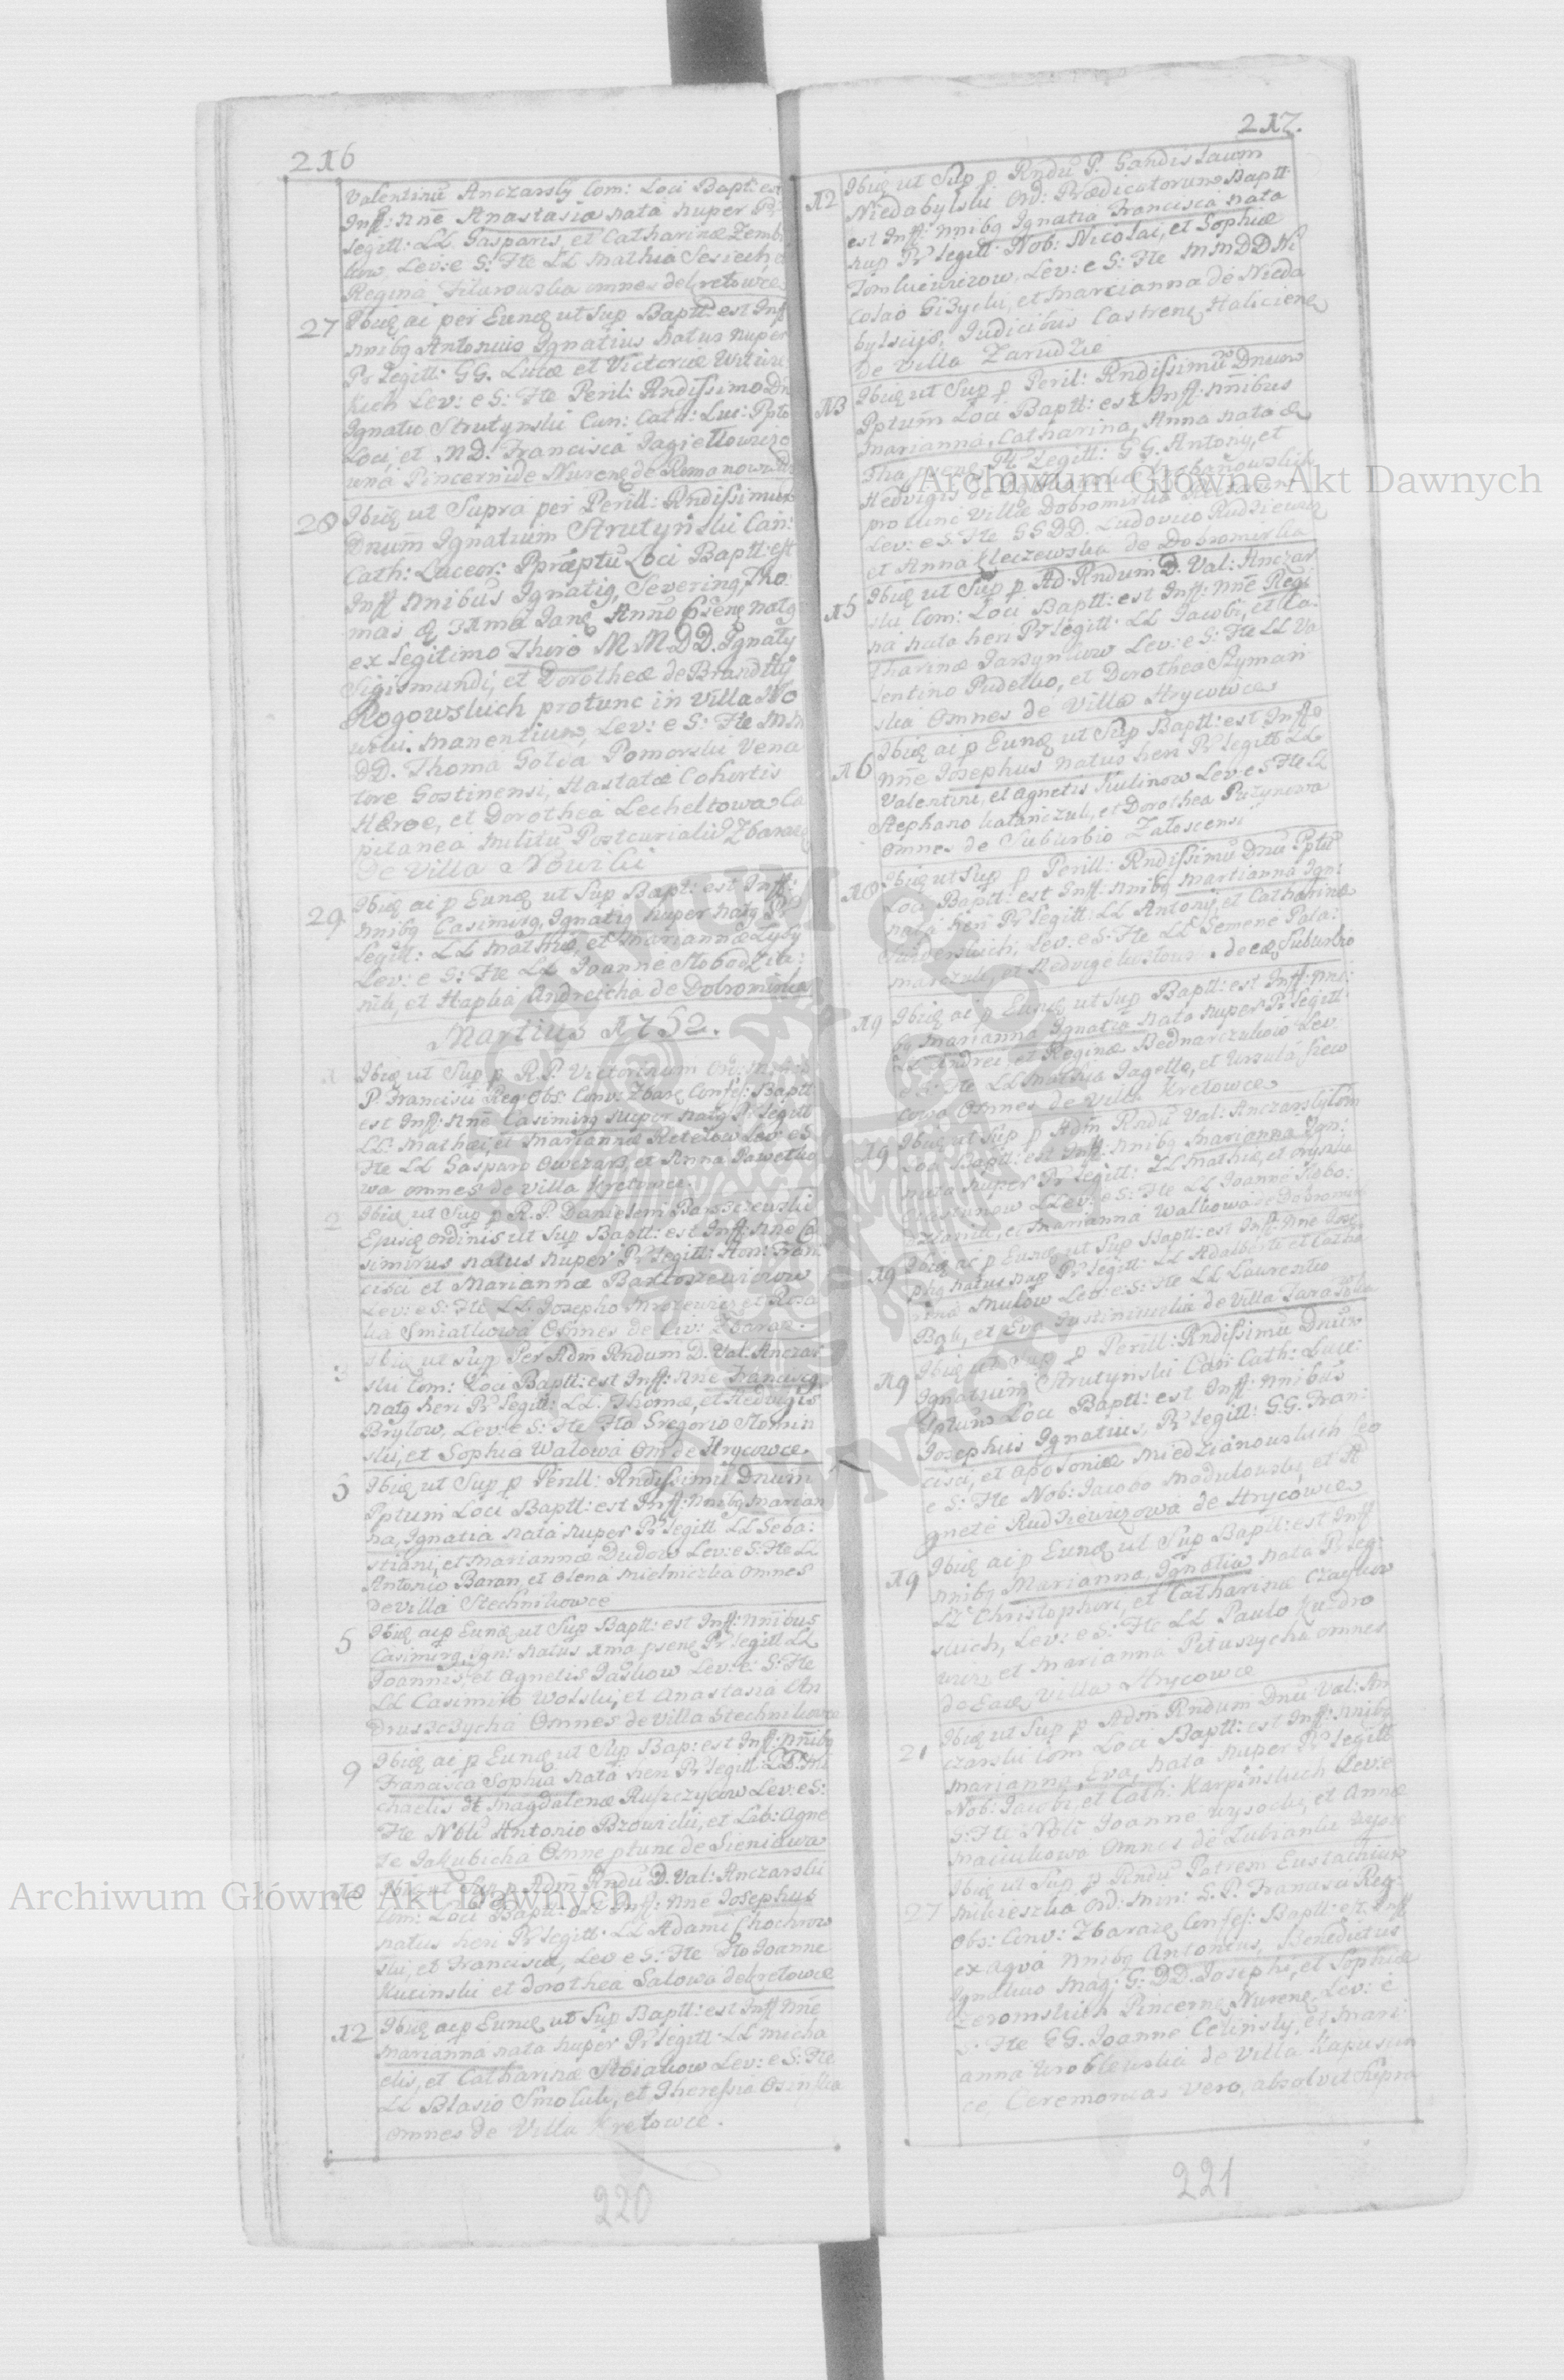 216
Valentinū Anczarsky Com: Loci Bapt: est
Inff: nn̄e Anastasia nata nuper Pr̄
legitt: LL Gasparis, et Catharinæ Zemb
kow, Lev: e S: Fte LL Mathia Sesiech
Regina omnes de Kretowce
27 Ibidē ac per Eund̄ ut Sup Baptt: est Inff
nnibq Antonius Ignatius natus nuper
Pr legitt: GG. Lucæ et Victoriæ
kich Lev: e S: Fte Peril: Rndissimo Dn
Ignatio Strutynski Can: Cath: Luc: Ppto
Loci, et MD. Francisca Jagiełłowiczo
wna Pincernide Nurenē de Romanow
28 Ibidē ut Supra per Perill: Rndissimum
Dnum̄ Ignatium Strutyński Can:
Cath: Luceor: Præptū Loci Baptt: est
Inff nnibus Ignatiq, Severinq, Tho:
mas Anno natq
ex legitimo Thoro M M DD. Ignaty
Sigismundi, et Dorotheæ de Brandtÿ
Rogowskich protunc in Villa No
wiki. manentium, Lev: e S: Fte MM
DD. Thoma Gołda Pomorski Vena
tore Gostinensi, Hastatæ Cohortis
Heroe, et Dorothea Lecheltowa Ca
pitanea Militū Postcurialiū Zbaraz
De Villa Nowiki
29. Ibidē ac p Eund̄ ut Sup Bapt: est Inff:
nnibq Casimirq, Ignatiq nuper natq Pr
legitt: LL Mathiæ, et Mariannæ Łysy
Lev: e S: Fte LL Joanne Słobodzia:
nik, et Hapka Andreicha de Dobrominka
Martius 1752.
Ibidē ut Sup p R. P. Victorinum Or: Min: S
P. Francisci Reg: Obs: Conv: Zbarą Confes: Baptt
est Inff: nn̄e Casimirq nuper natq Pr legitt
LL: Mathæi, et Mariannæ Retełow Lev: e S:
Fte LL Gasparo Owczarz, et Anna Pawełko
wa omnes de Villa Kretowce.
2 Ibidē ut Sup p R. P. Danielem Barszczewski
Ejusdē Ordinis ut Sup Baptt: est Inff: nne Ca
simirus natus nuper Pr legitt: Hon: Fran
cisci et Mariannæ Bartoszewiczow
Lev: e S: Fte LL Josepho Mrozewicz et Rosa
lia Smiałkowa Omnes de Civ: Zbaraz.
3 Ibidē ut Sup Per Adm̄ Rndum D. Val: Anczar
ski Com: Loci Baptt: est Inff: nn̄e Franciscq
natq heri Pr legitt: LL. Thomæ, et Hedvigis
Bryłow, Lev: e S: Fte Gregorio Słomin
ski, et Sophia Walowa Om̄ de Hrycowce
3 Ibidē ut Sup p Perill: Rndissimū Dnum̄
Pptum Loci Baptt: est Inff: nnibq Marian
na, Ignatia nata nuper Pr legitt LL Seba:
stiani, et Mariannæ Dudow Lev: e S: Fte LL
Antonio Baran, et Olena Mielniczka Omnes
de Villa Stechnikowce
5 Ibidē ac p Eund̄ ut Sup Baptt: est Inff: nn̄ibus
Casimirq, Ign: natus 1ma psenē Pr legitt LL
Joannis, et Agnetis Paskow Lev: e S: Fte
LL Casimiro Wolski, et Anastasia An
druszczycha Omnes de Villa Stechnikowce
9 Ibidē ac p Eund̄ ut Sup Bap: est Inff: nn̄ibq
Francisca Sophia nata heri Pr legitt LL: Mi
chaelis et Magdalenæ Ruszczycow Lev: e S:
Fte Nobli Antonio Brzowicki, et Lab: Agne
te Jakubicha Omne ptunc de Sieniawa
10 Ibidē ut Sup p Adm̄ Rndū D. Val: Anczarski
Com: Loci Baptt: est Inff: nne Josephus
natus heri Pr legitt: LL Adami Chochrow
ski, et Franciscæ, Lev e S: Fte Joanne
Kucinski et Dorothea Salowa de Kretowce
12 Ibidē ac p Eund̄ ut Sup Baptt: est Inff nn̄e
Marianna nata nuper Pr legitt: LL Micha
elis, et Catharinæ Stoiakow Lev: e S: Fte
LL Blasio Smoluk, et Theressia Osinska
Omnes de Villa Kretowce.
220
217.
12 Ibidē ut Sup p Rndū P. Gandislaum
Niedabylski Ord: Prædicatorum Baptt:
est Inff: nnibq Ignatia Francisca nata
nup Pr legitt: Nob: Nicolai, et Sophiæ
Tomkiewiczow, Lev: e S: Fte MMDD Ni
colao Giżycki, et Marcianna de Nieda
bylscijs, Judicibus Castrenq Halicienq
de Villa Zarudzie
13 Ibidē ut Sup p Peril: Rndissimū Dnum
Pptum̄ Loci Baptt: est Inff: nnibus
Marianna, Catharina, Anna nata
psenq Pr legitt: GG. Antonij, et
Hedvigis de
pro tunc Villæ Dobromirka
Lev: e S: Fte GGDD. Ludovico Rudziewicz
et Anna Kleczewska de Dobromirka
15 Ibidē ut Sup p Ad: Rndum D. Val: Anczar
ski Com: Loci Baptt: est Inff: nn̄e Regi
na nata heri Pr legitt: LL Jacobi, et Ca:
tharinæ Jarzynkow Lev: e S: Fte LL Va
lentino Pudełko, et Dorothea Szyman
ska Omnes de Villa Hrycowce
16 Ibidē ac p Eund̄ ut Sup Baptt: est Inff
nne Josephus natus heri Pr legitt LL
Valentini, et Agnetis Kulinow Lev: e S Fte LL
Stephano Katanczuk, et Dorothea Puzynowa
omnes de Suburbio Załoscensi
18 Ibidē ut Sup p Perill: Rndissimū Dnū Pptū
Loci Baptt: est Inff: nnibq Martianna Ign:
nata heri Pr legitt: LL Antonij, et Catharinæ
Lev: e S: Fte LL Semene Pała:
marczuk, et Hedvige de eod Suburbio
19 Ibidē ac p Eund̄ ut Sup Baptt: est Inff: nni:
bq Marianna Ignatia nata nuper Pr legitt
LL Andreæ, et Reginæ Bednarczukow Lev:
e S: Fte LL Mathia Jagełło, et Urszula
cowa Omnes de Villa Kretowce
19 Ibidē ut Sup p Adm̄ Rndū Val: Anczarsky Com
Loci Baptt: est Inff: nnibq Marianna Ign:
nata nuper Pr legitt: LL Mathiæ, et
Lev: e S: Fte LL Joanne Słobo:
dzianik, et Marianna Walkowa de Dobromirka
19 Ibidē ac p Eund̄ ut Sup Baptt: est Inff: nne Jose
phq natus nup Pr legitt: LL Adalberti et Catha
rinæ Mulow Lev: e: S: Fte LL Laurentio
Bąk, et Eva Justiniuka de Villa Tarasowka
19 Ibidē ut Sup p Perill: Rndissimū Dnum
Ignatium Strutynski Can Cath: Luce:
Pptum Loci Baptt: est Inff: nnibus
Josephus Ignatius, Pr legitt: GG. Fran:
cisci, et Apoloniæ Miedzianowskich Lev
e S: Fte Nob: Jacobo Madulowsky, et A
gnete Rudziewiczowa de Hrycowce
19 Ibidē ac p Eund̄ ut Sup Baptt: est Inff
nnibq Marianna, Ignatia nata Pr leg:
LL Christophori, et Catharinæ Czaykow
skich, Lev: e S: Fte LL Paulo Kundro
wicz, et Marianna Pituszycha omnes
de Eadē Villa Hrycowce
21 Ibidē ut Sup p Adm Rndum Dnū Val: An
czarski Com Loci Baptt: est Inff: nnibq
Marianna, Eva, nata nuper Pr legitt
Nob: Jacobi, et Cath: Karpińskich Lev: e
S: Fte Nobi Joanne Wysocki, et Annæ
Maciukowa Omnes de Lubianki Wysze
27 Ibidē ut Sup p Rndū Patrem Eustachium
Mikieszka Ord: Min: S. P. Francisci Reg:
Obs: Conv: Zbaraz Confes: Baptt: est Inff
ex aqva nnibq Antonius, Benedictus
Ignatius Mag: G: DD. Josephi, et Sophiæ
Zeromskich Pincernē Nurenē, Lev: e
S: Fte GG. Joanne Celinsky, et Mari:
anna Wroblewska de Villa Kapuscin
ce, Ceremonias vero, absolvit Supra
221
Archiwum Główne Akt Dawnych
Archiwum Główne Akt Dawnych
ARCHIWUM GŁÓWNE AKT DAWNYCH